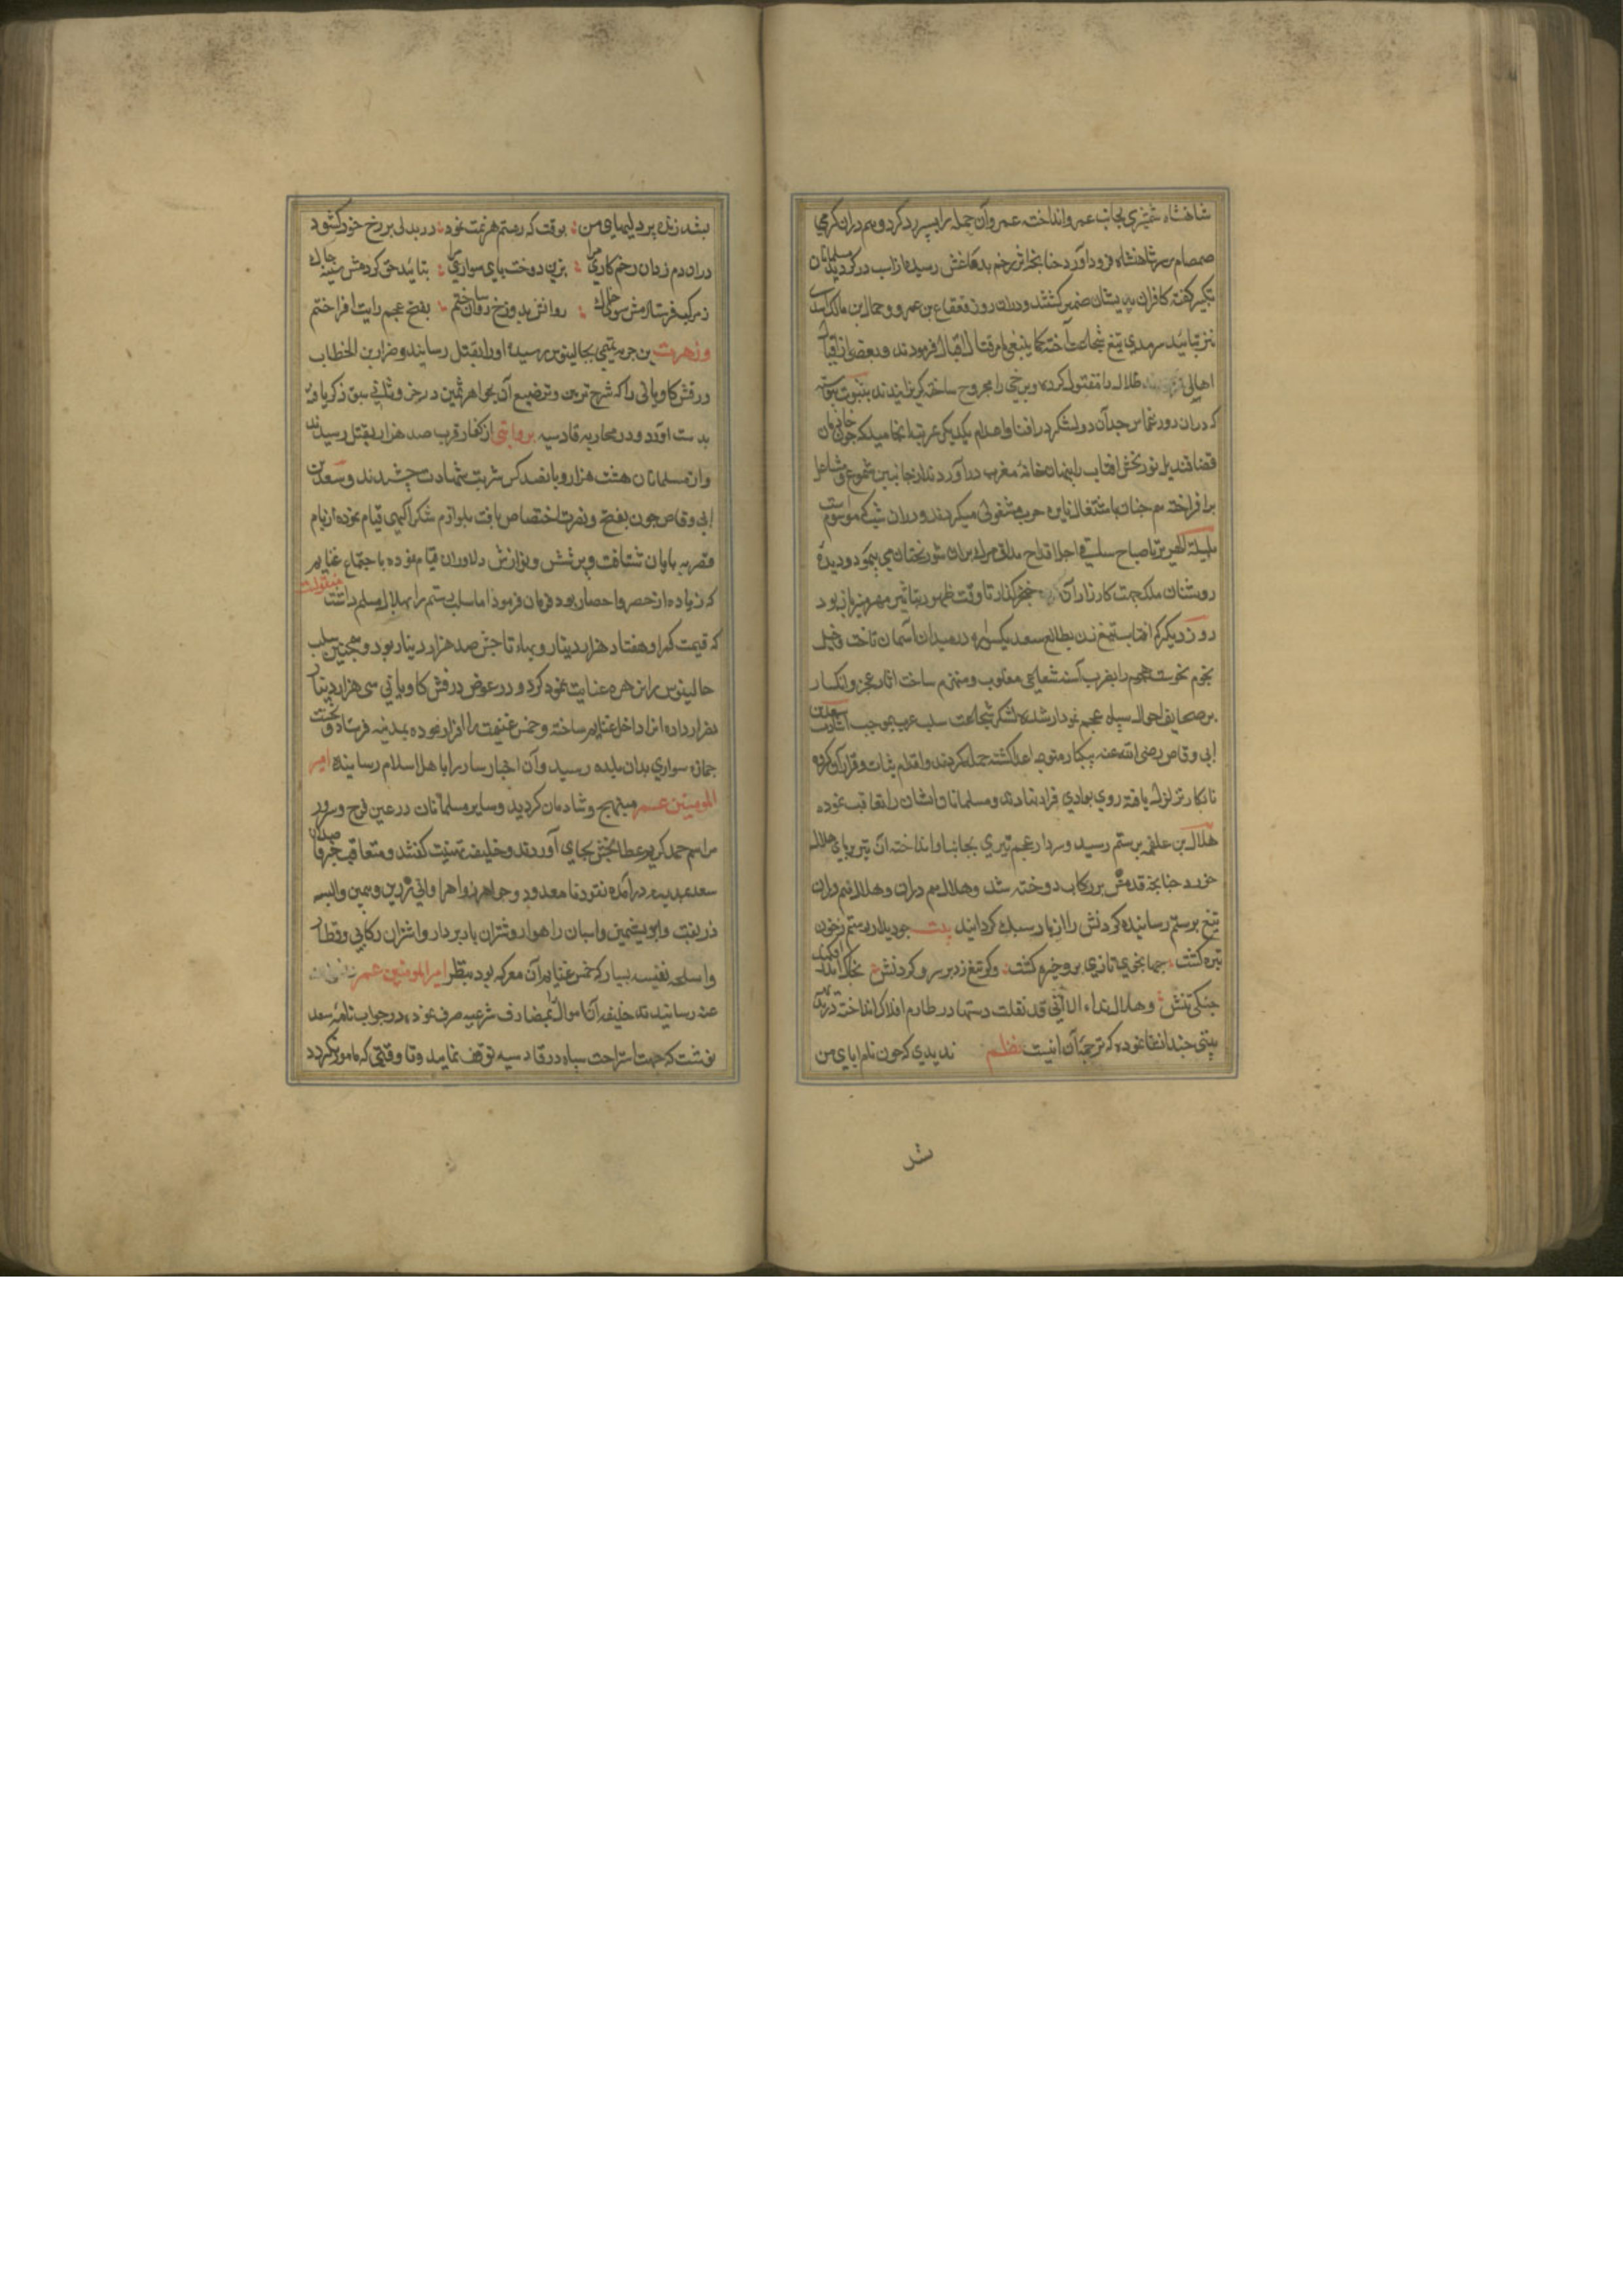 شاهنشاه شمشیری بجانب عمرو انداخته عمرو آن حمله را بسپر رد کرد و هم دران کرمی
صمصام بر سر شاهنشاه فرود آورد چنانچه اثر زخم بدماغش رسیده از اسب در کردید مسلمانان
تکبیر کفته کافران پریشان ضمیر کشتند و دران روز قعقاع بن عمرو و حمال بن مالک اسدی
نیز بتائید سرمدی تیغ شجاعت آخته کما ینبغی امر قتال فرمودند و بعضی از
اهالی ضلال را مقتول کرده و برخی را مجروح ساخته کریزانیدند بثبوت پیوسته
که دران روز محاربه آن دو لشکر در افنا و اعدام یکدیکر بمرتبه انجامید که چون خازنان
قضا قندیل نور بخش افتاب را بنهان خانهٔ مغرب در آوردند از جانبین شموع و مشاعل
بر افراخته همچنان باشتغال نایره حرب مشغولی میکردند و دران شب که موسومست
بلیلة الهریر تا صباح ساقی اجل اقداح مذاق مرک بران شوربختان می پیمود و دیدهٔ
روشنان ملک جهت کارزار آن خنجر کذار تا وقت ظهور تباشیر مهر منیر باز بود
روز دیکر که افتاب تیغ زن بطالع سعد یکسواره در میدان آسمان تاخت و خیل
نجوم نحوست هجوم را بضرب آسنه شعاعی مغلوب و منهزم ساخت اثار عجز و انکسار
بر صحایف احوال سپاه عجم نمودار شده لشکر شجاعت سلب عرب بموجب اشارت سعد بن
ابی وقاص رضی الله عنه بیکبار متوجه اعدا کشته حمله کردند و اقدام ثبات و قرار آن کروه
نابکار تزلزل یافته روی بوادی فرار نهادند و مسلمانان ایشان را تعاقب نموده
هلال بن علقمه برستم رسید و سردار عجم تیری بجانب او انداخته آن تیر بر پای هلال
خورد چنانچه قدمش بر رکاب دوخته شد و هلال هم دران
تیغ برستم رسانیده کردنش را از بار سر سبک کردانید بیت چو دیدار رستم ز خون
تیره کشت جهانجوی تازی برو چیره کشت دکر تیغ زد بر سر و کردنش بخاک اندر افکند
جنکی تنش و هلال نداء الا انی قد نقلت رستما در طارم افلاک انداخته درین
بیتی چند انشا نموده که ترجمهٔ آن اینست نظم ندیدی که چون نام ابای من
شد
بشد زنده بر دلیهای من بوقت که رستم هزیمت نمود در بددلی بر رخ خود کشود
دران دم زد آن زخم کاری مرا بزین دوخت پای سواری مرا بتائید حق کردمش سینه چاک
ز مرکب فرستادمش سوی خاک روانش بدوزخ روان ساختم بفتح عجم رایت افراختم
و زهرت بن جویه تیمی بجالینوس رسیده او را بقتل رسانید و ضرار بن الخطاب
درفش کاویانی را که شرح تزیین و ترصیع آن بجواهر ثمین در جزو ثانی سبق ذکر یافته
بدست آورد و در محاربه قادسیه بروایتی از کفار قرب صد هزار بقتل رسیدند
و از مسلمانان هشت هزار و پانصد کس شربت شهادت چشیدند و سعد بن
ابی وقاص چون بفتح و نصرت اختصاص یافت بلوازم شکر آلهی قیام نموده از بام
قصر به پایان شتافت و بپرشش و نوازش دلاوران قیام نموده باجتماع غنایم
که زیاده از حصر و احصار بود فرمان فرمود اما سلب رستم را بهلال مسلم داشت منقولست
که قیمت کمر او هفتاد هزار دینار و بهاء تاجش صد هزار دینار بود و همچنین سلب
جالینوس را بزهره عنایت نمود کرد و در عوض درفش کاویانی سی هزار دینار
بضرار داده انرا داخل غنایم ساخته و خمس غنیمت را افراز نموده بمدینه فرستاد
جمازه سواری بدان بلده رسید و آن اخبار سار را باهل اسلام رسانیده امیر
المومنین عمر مبتهج و شادمان کردید و سایر مسلمانان در عین فرح و سرور
مراسم حمد کریم عطابخش بجای آوردند و خلیفه تهنیت کفتند و متعاقب
سعد بمدینه در آمده نقود نا معدود و جواهر زواهر و اوانی زرین و سیمین و البسه
زربفت و ابریشمین و اسبان راهوار و شتران باربردار و اشتران رکابی و قطار
و اسلحه نفیسه بسیار که خمس غنایم آن معرکه بود بنظر امیر المومنین عمر رضی الله
عنه رسانیدند خلیفه آن اموال بمصارف شرعیه صرف نموده در جواب نامهٔ سعد
نوشت که جهت استراحت سپاه در قادسیه توقف نمایید و تا وقتی که مامور نکردد